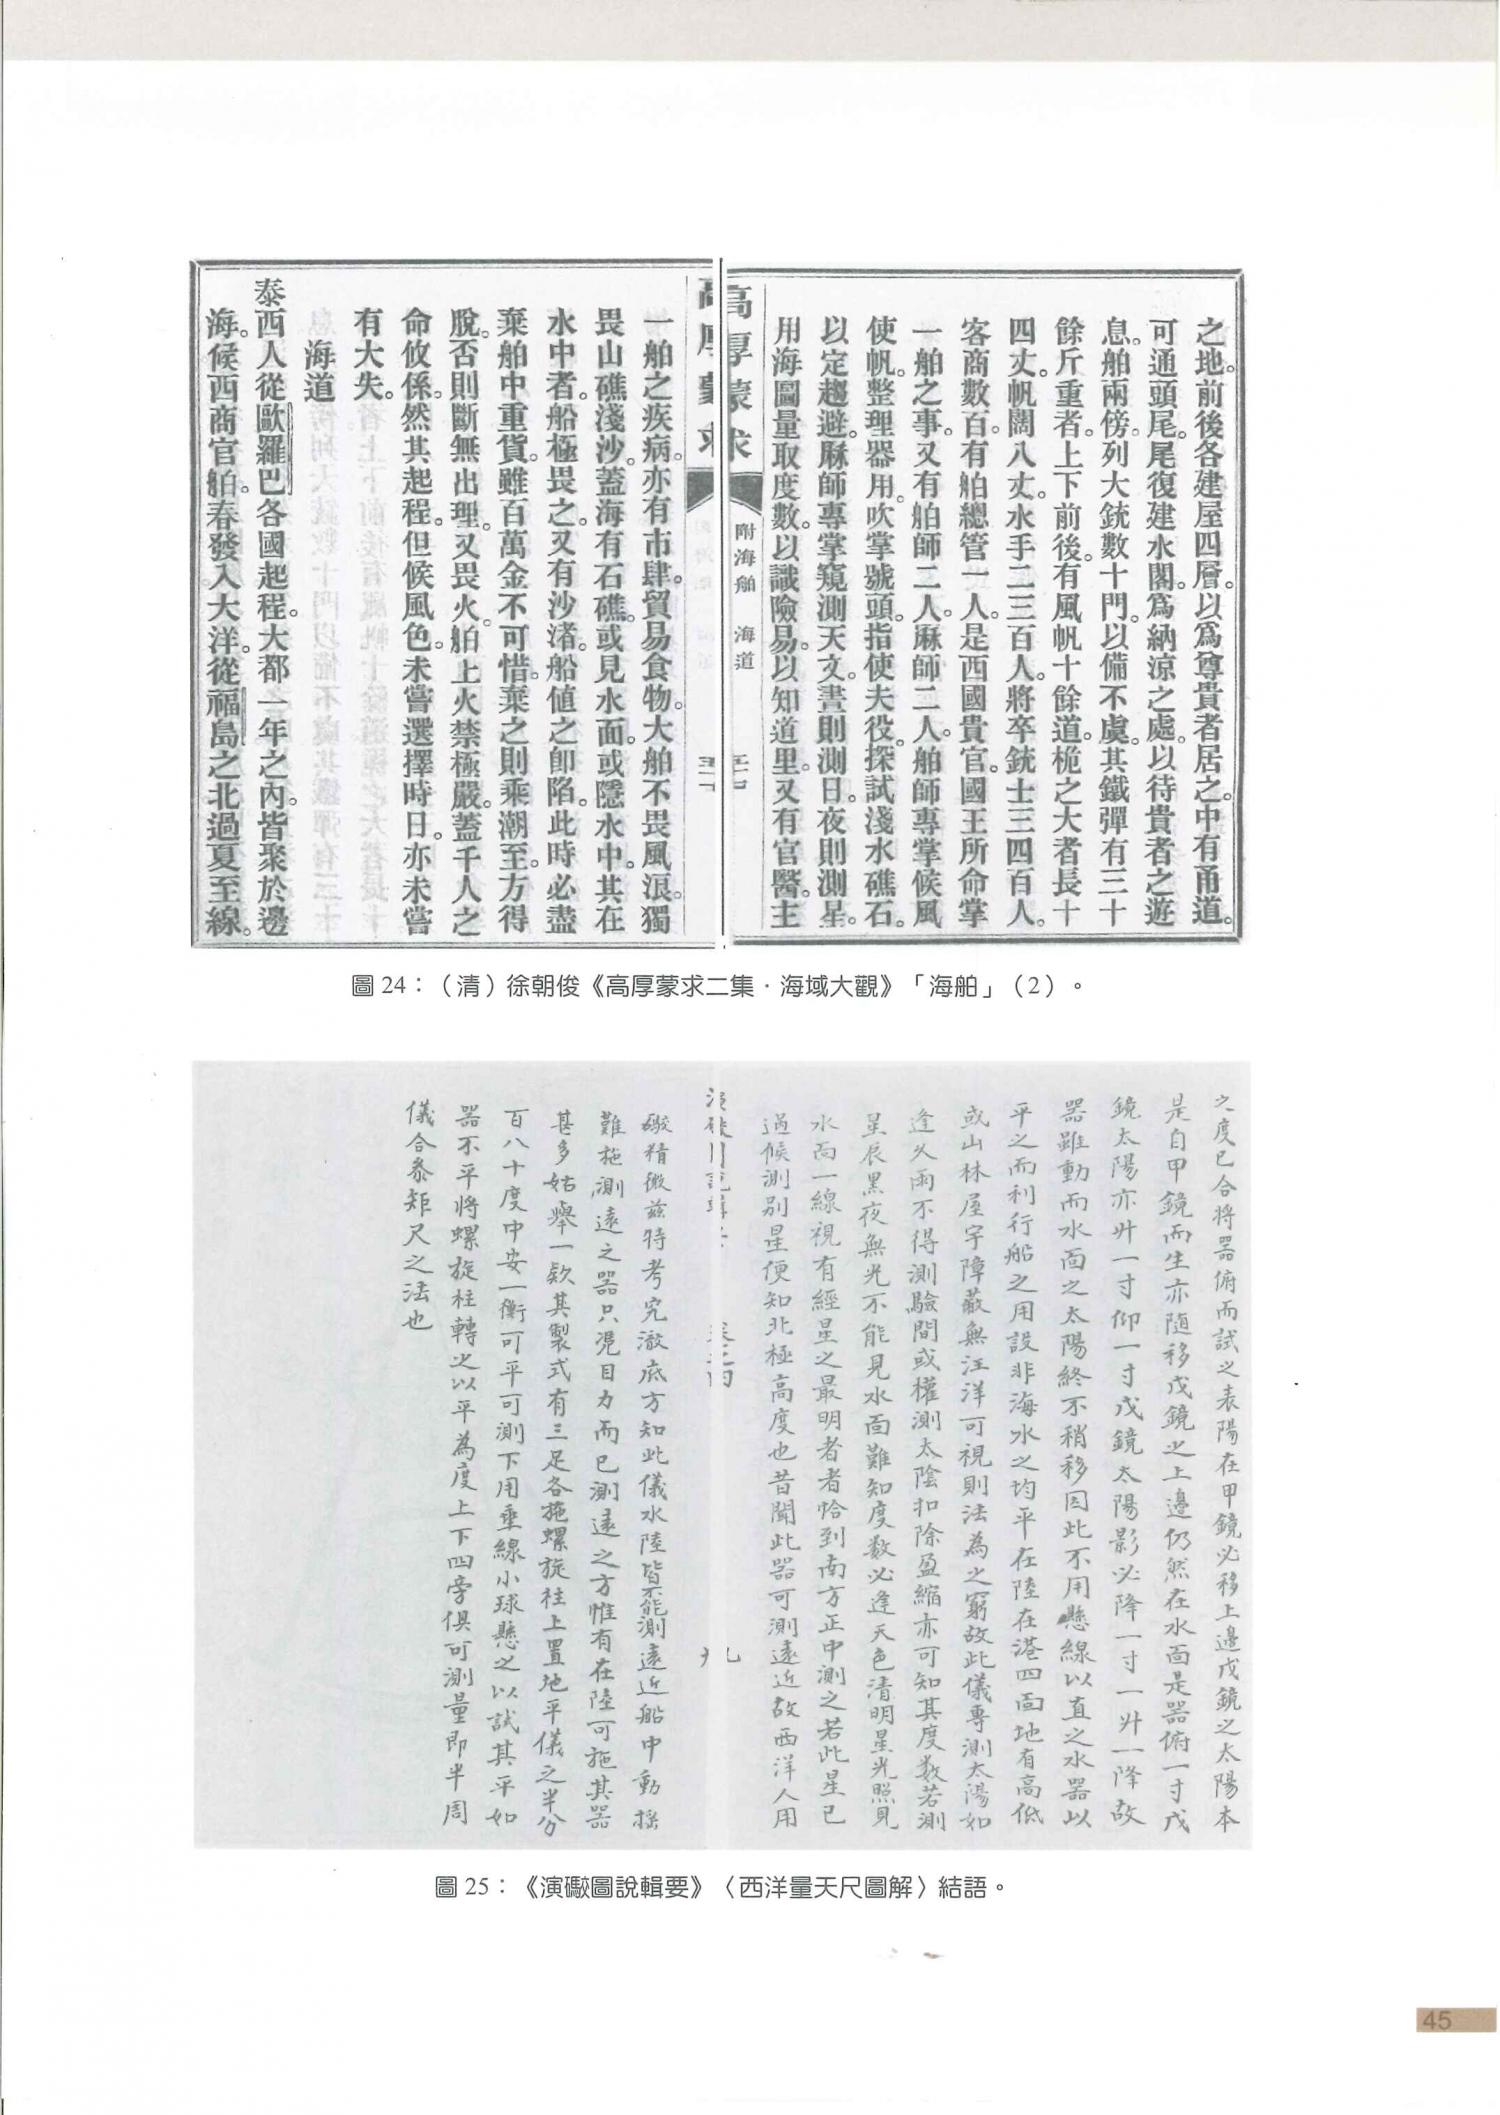 之地。前後各建屋四層。以爲尊貴者居之。中有甬道。
可通頭尾。尾復建水閣。爲納涼之處。以待貴者之遊
息。舶兩傍。列大銃數十門。以備不虞。其鐵彈有三十
餘斤重者。上下前後。有風帆十餘道。桅之大者長十
四丈。帆闊八丈。水手二三百人。將卒銃士三四百人。
客商數百。有舶總管一人。是西國貴官。國王所命。掌
一舶之事。又有舶師二人。厤師二人。舶師專掌候風
使帆。整理器用。吹掌號頭。指使夫役。探試淺水礁石。
以定趨避。厤師專掌窺測天文。晝則測日。夜則測星。
用海圖量取度數。以識險易。以知道里。又有官醫。主
高厚蒙求
附海舶 海道
一舶之疾病。亦有市肆。貿易食物。大舶不畏風浪。獨
畏山礁淺沙。蓋海有石礁。或見水面。或隱水中。其在
水中者。船極畏之。又有沙渚。船値之卽陷。此時必盡
棄舶中重貨。雖百萬金不可惜。棄之則乘潮至。方得
脫。否則斷無出理。又畏火。舶上火禁極嚴。蓋千人之
命攸係。然其起程。但候風色。未嘗選擇時日。亦未嘗
有大失。
海道
泰西人從歐羅巴各國起程。大都一年之內。皆聚於邊
海。候西商官舶。春發入大洋。從福島之北過夏至線。
圖 24：（清）徐朝俊《高厚蒙求二集．海域大觀》「海舶」（2）。
之度已合將器俯而試之表陽在甲鏡必移上邊戊鏡之太陽本
是自甲鏡而生亦隨移戊鏡之上邊仍然在水面是器俯一寸戊
鏡太陽亦升一寸仰一寸戊鏡太陽影必降一寸一升一降故
器雖動而水面之太陽終不稍移因此不用懸線以直之水器以
平之而利行船之用設非海水之均平在陸在港四面地有高低
或山林屋宇障蔽無汪洋可視則法為之窮故此儀專測太陽如
逢久雨不得測驗間或權測太陰扣除盈縮亦可知其度數若測
星辰黑夜無光不能見水面難知度數必逢天色清明星光照見
水面一線視有經星之最明者者恰到南方正中測之若此星已
過候測別星便知北極高度也昔聞此器可測遠近故西洋人用
九
礮精微茲特考究澈底方知此儀水陸皆不能測遠近船中動搖
難施測遠之器只憑目力而已測遠之方惟有在陸可施其器
甚多姑舉一欵其製式有三足各施螺旋柱上置地平儀之半分
百八十度中安一衡可平可測下用垂線小球懸之以試其平如
器不平將螺旋柱轉之以平為度上下四旁俱可測量即半周
儀合叅矩尺之法也
圖 25：《演礮圖說輯要》〈西洋量天尺圖解〉結語。
45